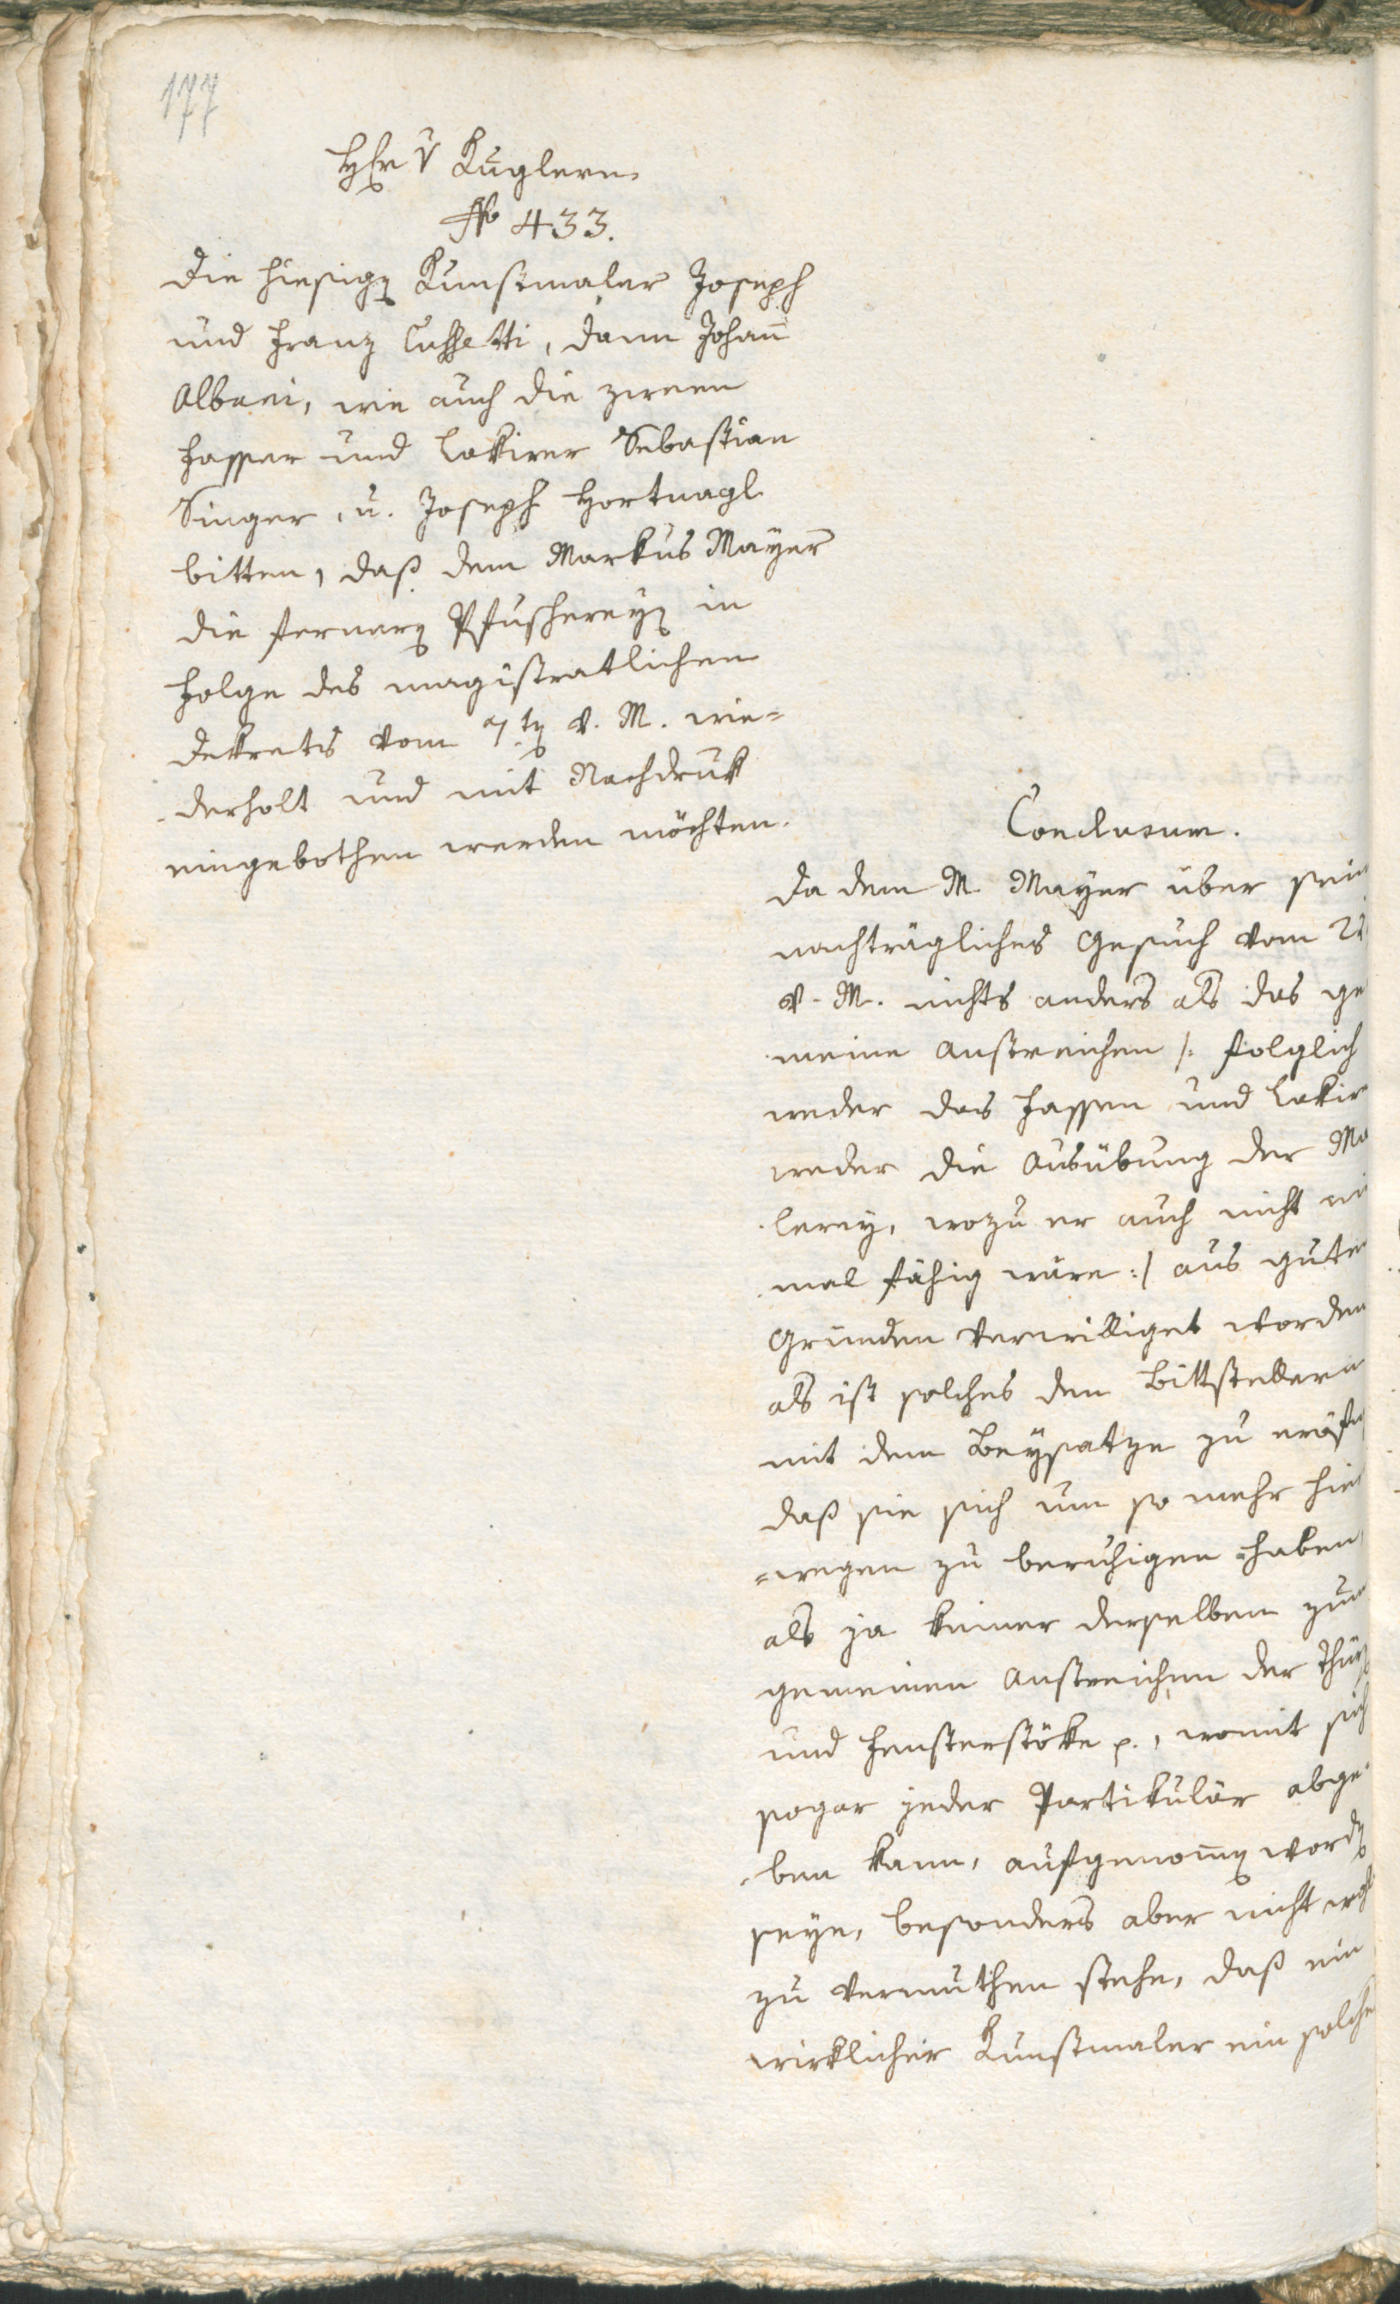 177
Hfr v Kuglern.
No 433.
Die hiesigen Kunstmaler Joseph
und Franz Cussetti, dann Johann
Albani, wie auch die zween
Fasser und Lakirer Sebastian
Singer, u. Joseph Hortnagl
bitten, daß dem Markus Mayer
die fernern Pfuschereyen in
Folge des magistratlichen
Dekrets vom 7ten v. M. wie=
derholt und mit Nachdruk
eingebothen werden möchten.
Conclusum.
Da dem M. Mayer über sein
nachträgliches Gesuch vom 22
v. M. nichts anders als das ge
meine Anstreichen /: folglich
weder das Fassen und Lakir
weder die Ausübung der Ma
lerey, wozu er auch nicht ein
mal fähig wäre :/ aus guten
Gründen verwilliget worden
als ist solches den Bittstellern
mit dem Beysatze zu eröfn
daß sie sich um so mehr hie
=wegen zu beruhigen haben,
als ja keiner derselben zum
gemeinen Anstreichen der Thür
und Fensterstöke p., womit sich
sogar jeder Partikulär abge
ben kann, aufgenommen worden
seye, besonders aber nicht wohl
zu vermuthen stehe, daß ein
wirklicher Kunstmaler ein solche